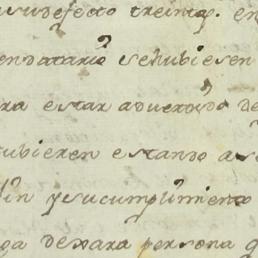 sudefecto treinta. en
endatario sehubiesen
ra estar aduertido de
ubieren estando as
in ysucumplimiento
ga dexara persona q